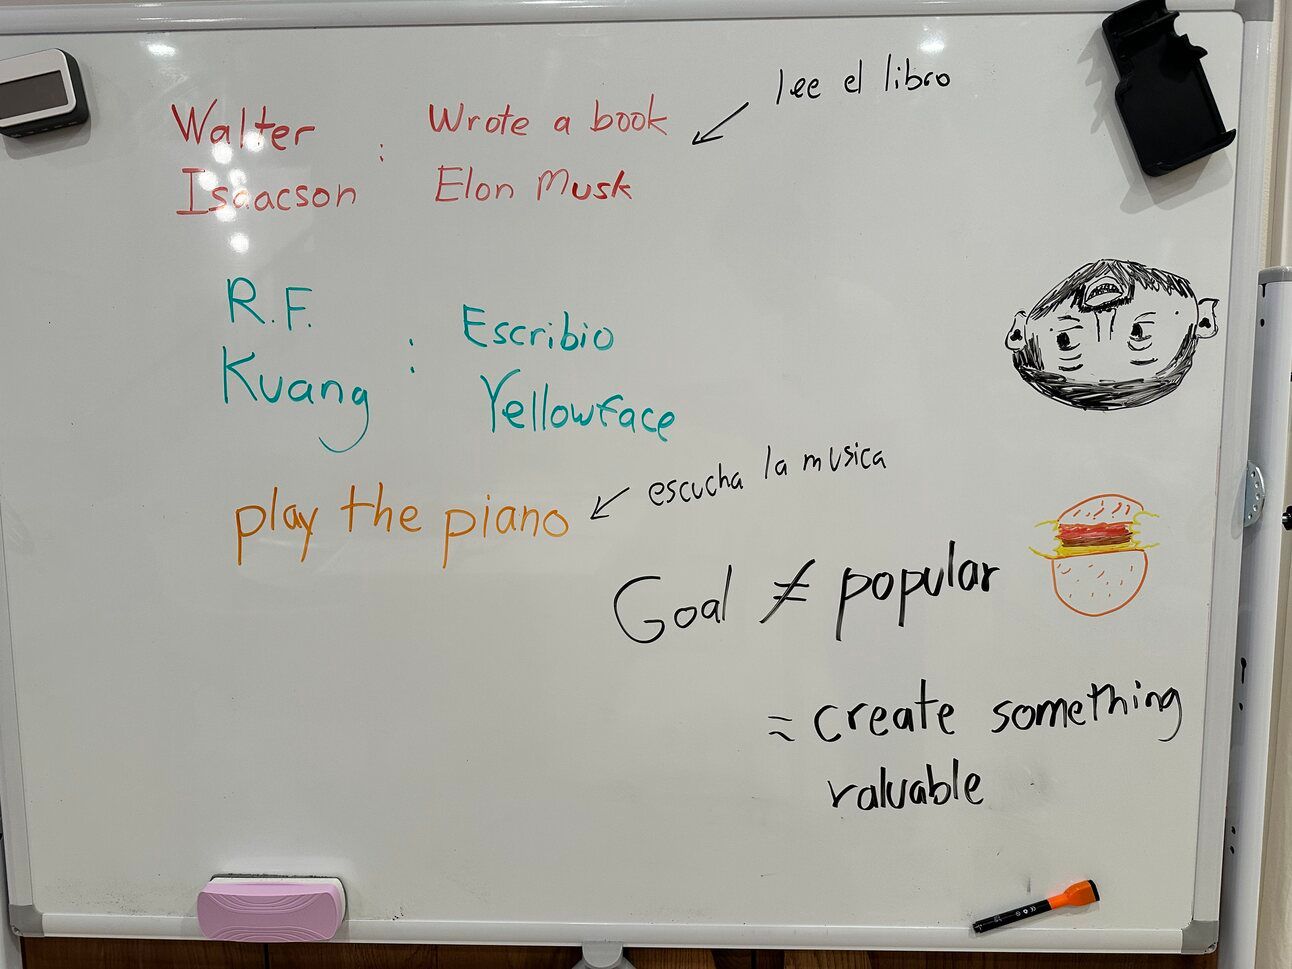 Walter
Isaacson
:
Wrote a book
Elon Musk
lee el libro
R.F.
Kuang
:
Escribio
Yellowface
play the piano
escucha la musica
Goal ≠ popular
= create something
valuable